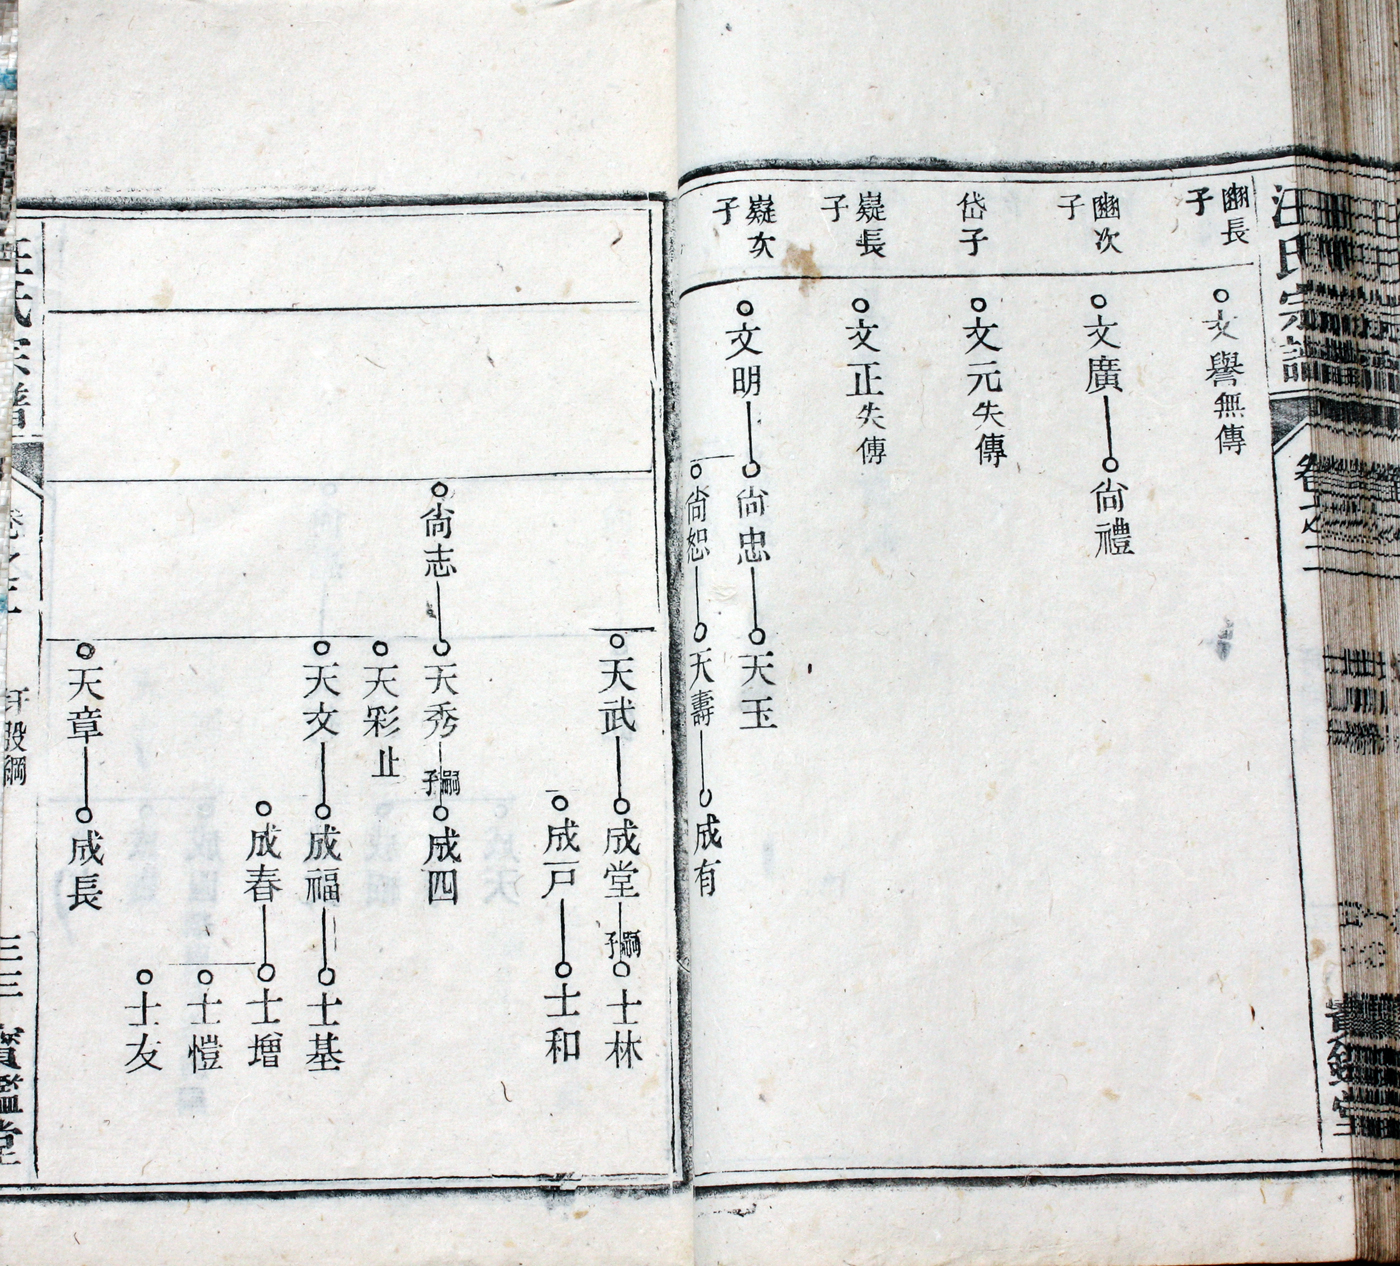 汪氏宗譜
卷之二
寶鑑堂
豳長子
文譽無傳
豳次子
文廣
尙禮
岱子
文元失傳
嶷長子
文正失傳
嶷次子
文明
尙忠
天玉
尙恕
天壽
成有
天武
成堂
嗣子
士林
成戸
士和
尙志
天秀
嗣子
成四
天彩止
天文
成福
士基
成春
士增
士愷
士友
天章
成長
汪氏宗譜
卷之二
三三
寶鑑堂